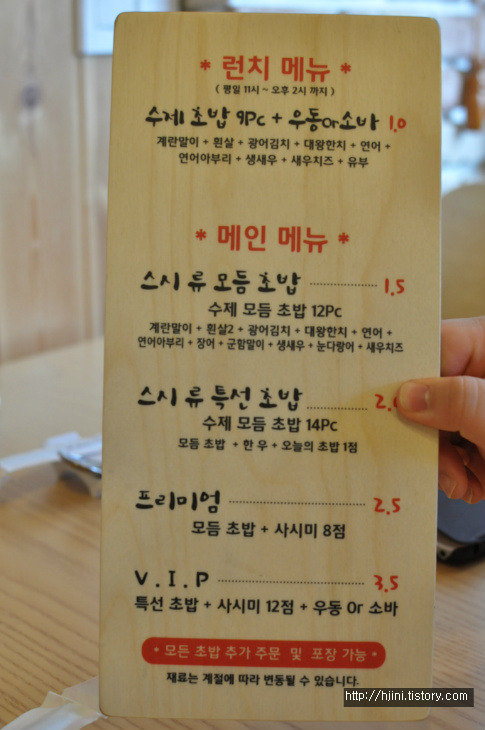 * 런치 메뉴 *
( 평일 11시 ~ 오후 2시 까지 )
수제 초밥 9Pc + 우동or소바 1.0
계란말이 + 흰살 + 광어김치 + 대왕한치 + 연어 +
연어아부리 + 생새우 + 새우치즈 + 유부
* 메인 메뉴 *
스시 류 모듬 초밥 1.5
수제 모듬 초밥 12Pc
계란말이 + 흰살2 + 광어김치 + 대왕한치 + 연어 +
연어아부리 + 장어 + 군함말이 + 생새우 + 눈다랑어 + 새우치즈
스시 류 특선 초밥
수제 모듬 초밥 14Pc
모듬 초밥 + 한 우 + 오늘의 초밥 1점
프리미엄 2.5
모듬 초밥 + 사시미 8점
V . I . P 3.5
특선 초밥 + 사시미 12점 + 우동 Or 소바
* 모든 초밥 추가 주문 및 포장 가능 *
재료는 계절에 따라 변동될 수 있습니다.
http://hjini.tistory.com